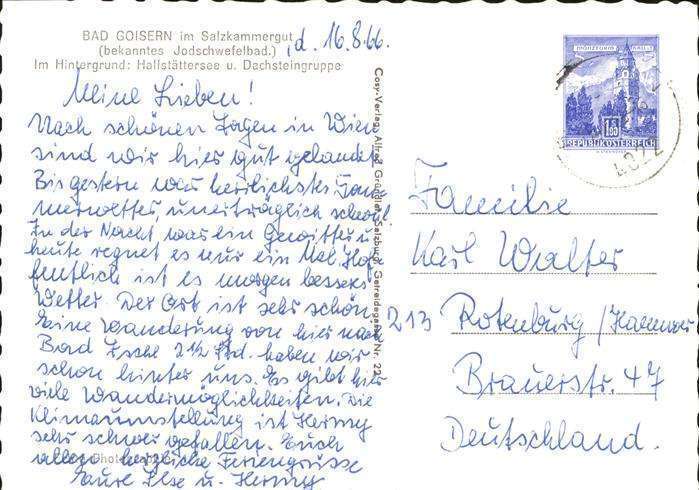 BAD GOISERN im Salzkammergut
(bekanntes Jodschwefelbad.)
Im Hintergrund: Hallstättersee u. Dachsteingruppe
,d. 16.8.66.
Meine Lieben!
Nach schönen Tagen in Wien
sind wir hier gut gelandet
Bis gestern war herrlichstes Som-
merwetter, unerträglich schwül.
In der Nacht war ein Gewitter u.
heute regnet es nur ein Mal. Hof-
fentlich ist es morgen besseres
Wetter. Der Ort ist sehr schön
Eine Wanderung von hier nach
Bad Ischl 2½ Std. haben wir
schon hinter uns. Es gibt hier
viele Wandermöglichkeiten. Die
Klimaumstellung ist Henny
sehr schwer gefallen. Euch
allen herzliche Feriengrüsse
Eure Ilse u. Henny
Cosy-Verlag Alfred Gründler, Salzburg, Getreidegasse Nr. 22
REPUBLIK ÖSTERREICH
4022
Familie
Karl Walter
213 Rotenburg/Hannover
Brauerstr. 47
Deutschland.